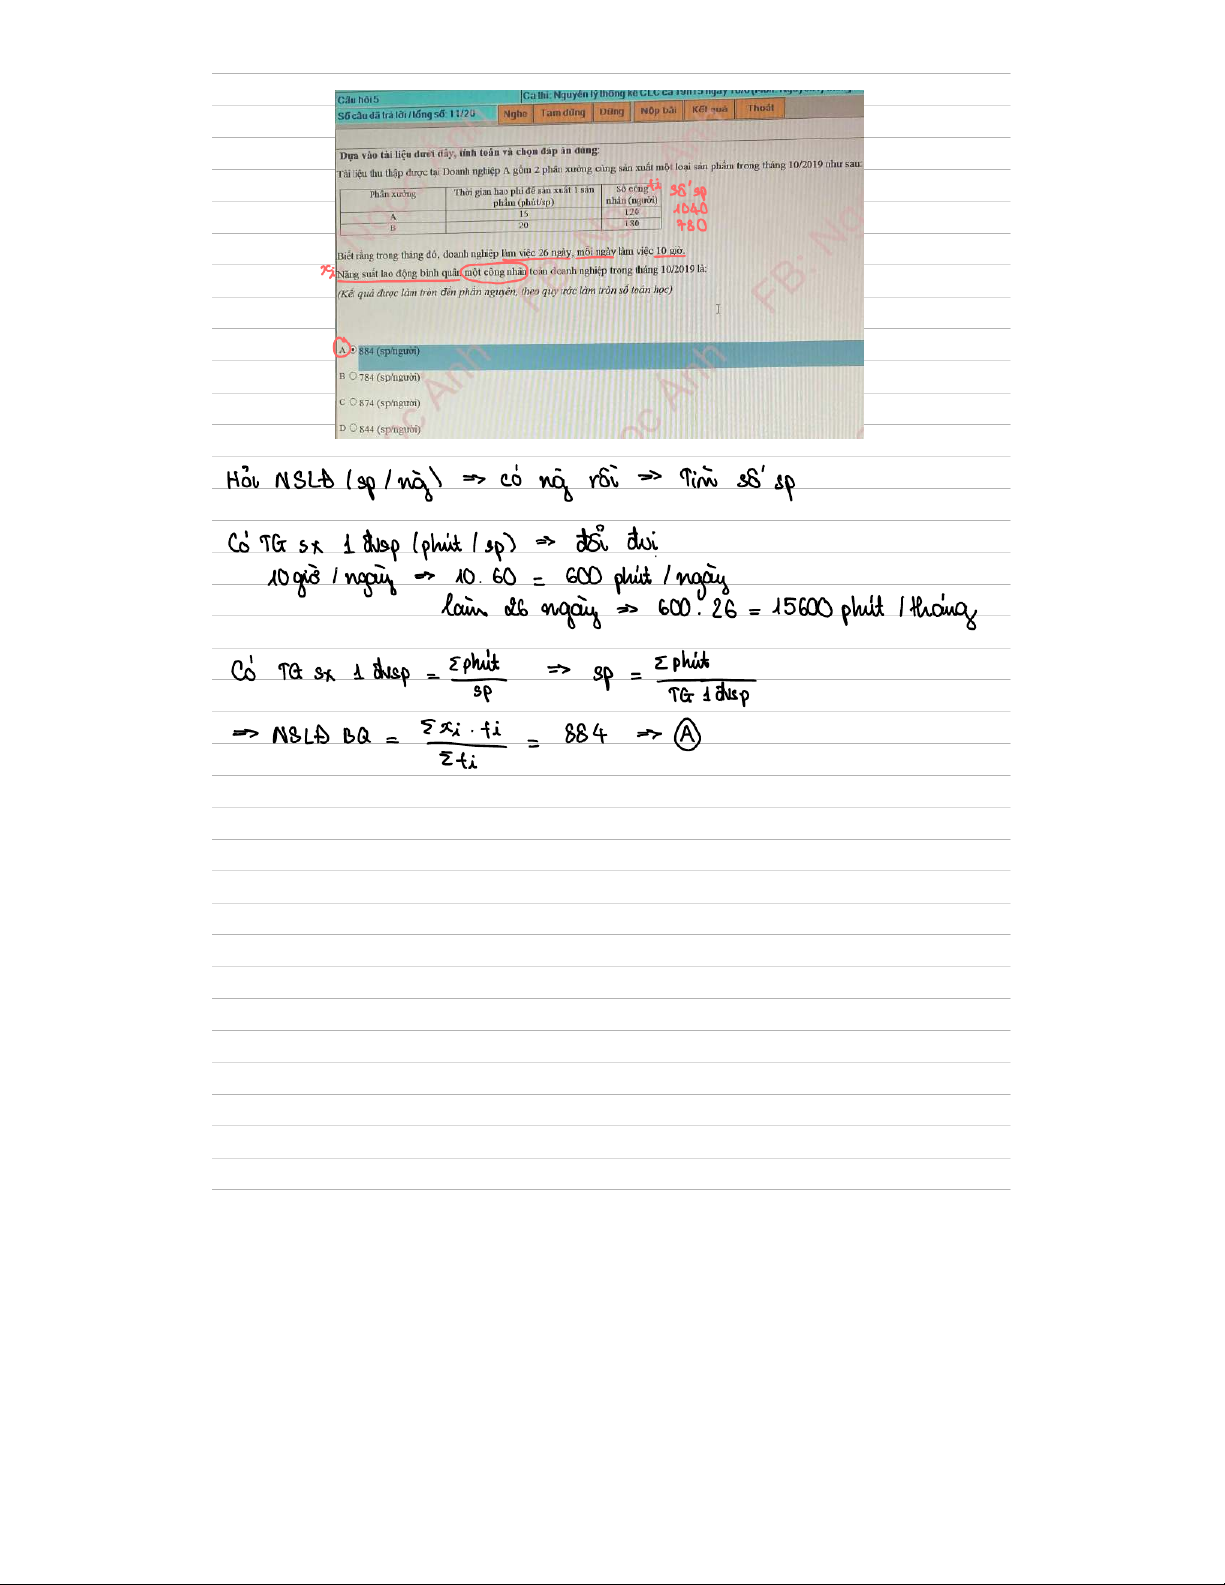 Câu hỏi 5
Ca thi: Nguyên lý thống kê CLC ca
Số câu đã trả lời/tổng số: 11/20 Nghe Tạm dừng Dừng Nộp bài Kết quả Thoát
Dựa vào tài liệu dưới đây, tính toán và chọn đáp án đúng:
Tài liệu thu thập được tại Doanh nghiệp A gồm 2 phân xưởng cùng sản xuất một loại sản phẩm trong tháng 10/2019 như sau:
Phân xưởng Thời gian hao phí để sản xuất 1 sản phẩm (phút/sp) Số công nhân (người) fi số sp
A 15 120 1040
B 20 180 780
Biết rằng trong tháng đó, doanh nghiệp làm việc 26 ngày, mỗi ngày làm việc 10 giờ.
xi Năng suất lao động bình quân một công nhân toàn doanh nghiệp trong tháng 10/2019 là:
(Kết quả được làm tròn đến phần nguyên, theo quy ước làm tròn số toán học)
A 884 (sp/người)
B 784 (sp/người)
C 874 (sp/người)
D 844 (sp/người)
FB: Ngọc Ánh
Hỏi NSLĐ (sp / ng) => có ng rồi => Tìm số sp
Có TG sx 1 đvsp (phút / sp) => đổi đvi
10 giờ / ngày => 10 . 60 = 600 phút / ngày
làm 26 ngày => 600 . 26 = 15600 phút / tháng
Có TG sx 1 đvsp = Σ phút / sp => sp = Σ phút / TG 1 đvsp
=> NSLĐ BQ = Σ xi . fi / Σ fi = 884 => A